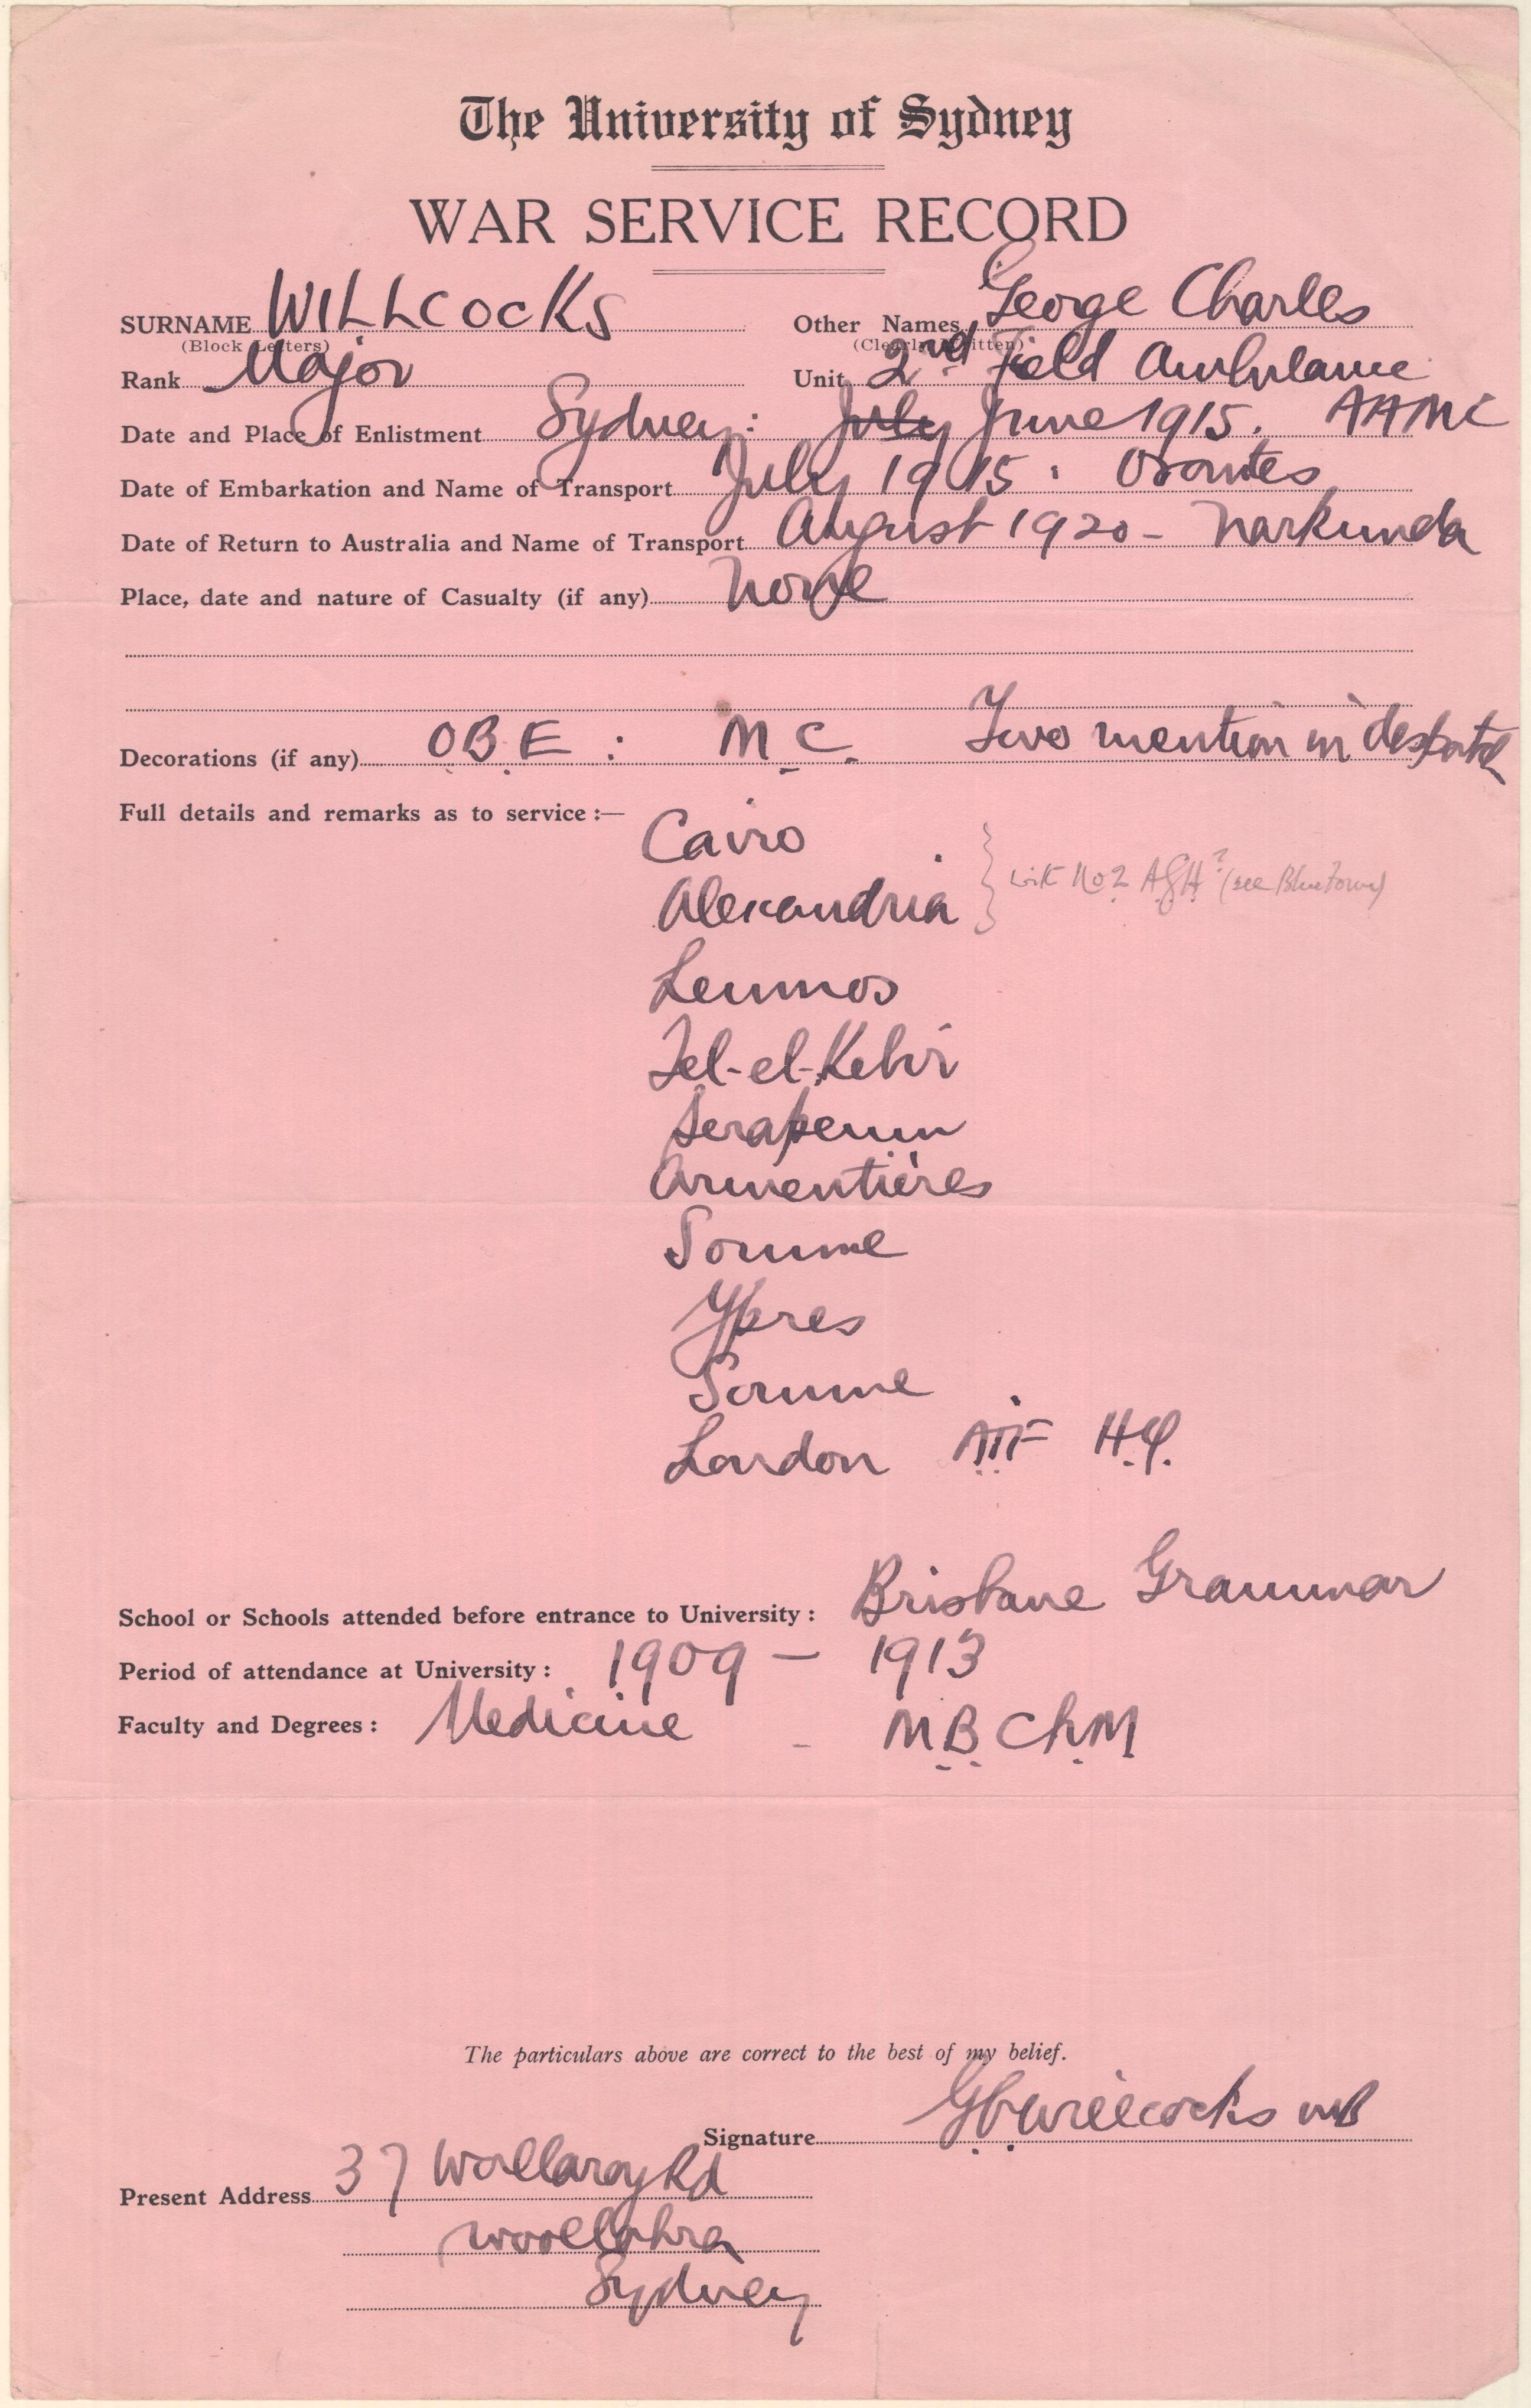 The University of Sydney
WAR SERVICE RECORD
SURNAME WILLCOCKS Other Names George Charles
(Block Letters) (Clearly Written)
Rank Major Unit 2nd Field Ambulance
Date and Place of Enlistment Sydney: July June 1915. AAMC
Date of Embarkation and Name of Transport July 1915: Orontes
Date of Return to Australia and Name of Transport August 1920 - Narkunda
Place, date and nature of Casualty (if any) None
Decorations (if any) O.B.E: M.C. Two mention in
Full details and remarks as to service:—
Cairo
Alexandria } with No 2 AGH? (see Blue Form)
Lemnos
Tel-el-Kebir
Serapeum
Armentières
Somme
Ypres
Somme
London A.I.F H.Q.
School or Schools attended before entrance to University: Brisbane Grammar
Period of attendance at University: 1909 - 1913
Faculty and Degrees: Medicine - M.B. Ch.M
The particulars above are correct to the best of my belief.
Signature G.C. Willcocks MB
Present Address 37 Woollaroy Rd
Woollahra
Sydney